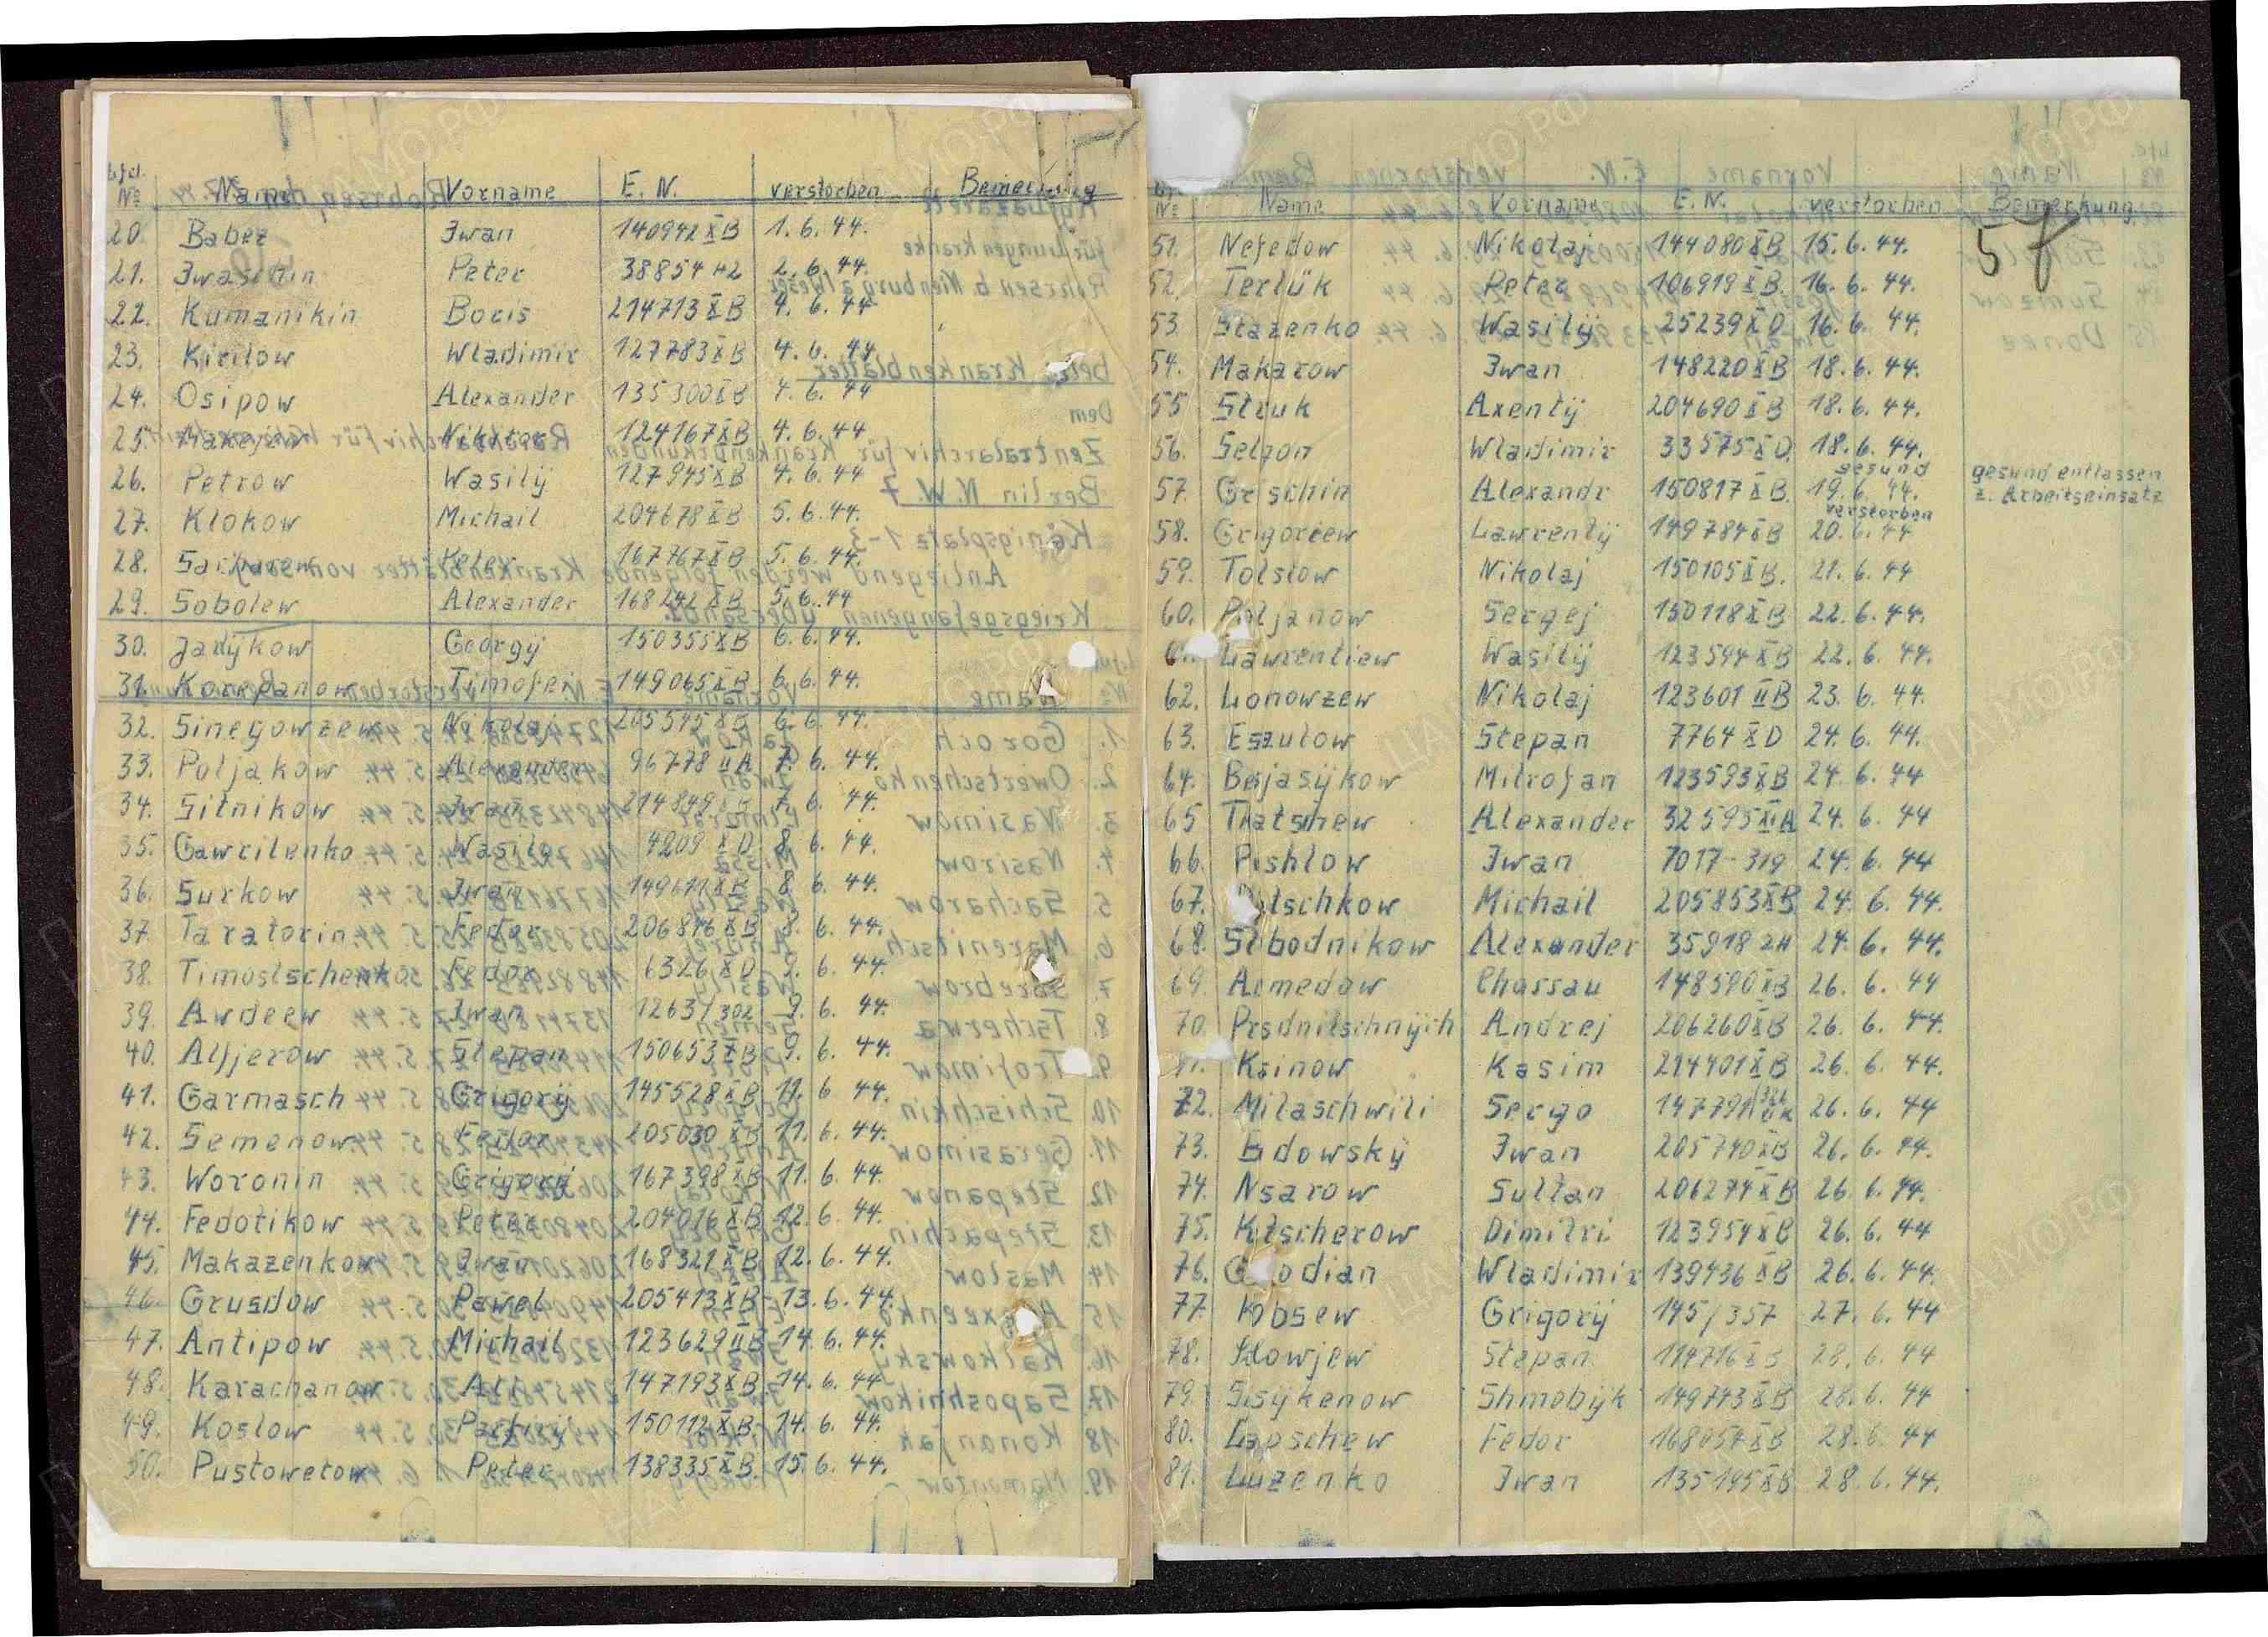 lfd. Nº Name Vorname E. N. verstorben Bemerkung
20. Babez Iwan 140942 XB 1. 6. 44.
21. Iwaschin Peter 38854 H2 2. 6. 44.
22. Kumanikin Boris 214713 XB 4. 6. 44
23. Kirilow Wladimir 127783 XB 4. 6. 44
24. Osipow Alexander 135300 XB 4. 6. 44
25. Nikitor 124167 XB 4. 6. 44
26. Petrow Wasilij 127945 XB 4. 6. 44
27. Klokow Michail 204678 XB 5. 6. 44.
28. Peter 167767 XB 5. 6. 44.
29. Sobolew Alexander 168242 XB 5. 6. 44
30. Jadÿkow Georgij 150355 XB 6. 6. 44.
31. Korepanow Timofei 149065 XB 6. 6. 44.
32. Sinegowzew Nikolaj 205545 XB 6. 6. 44.
33. Poljakow Alexander 96778 IIA 7. 6. 44.
34. Sitnikow Iwan 214849 XB 7. 6. 44.
35. Gawrilenko Wasilij 4209 XD 8. 6. 44.
36. Surkow Iwan 149611 XB 8. 6. 44.
37. Taratorin Fedor 206846 XB 8. 6. 44.
38. Timostschenko Fedor 6326 XD 9. 6. 44.
39. Awdeew Iwan 1263/302 9. 6. 44.
40. Alfjerow Stepan 150653 XB 9. 6. 44.
41. Garmasch Grigorij 145528 XB 11. 6 44.
42. Semenow Fedor 205030 XB 11. 6. 44.
43. Woronin Grigorij 167398 XB 11. 6 44.
44. Fedotikow Peter 204016 XB 12. 6. 44.
45. Makazenkow Iwan 168321 XB 12. 6. 44.
46. Grusdow Pawel 205413 XB 13. 6. 44.
47. Antipow Michail 123629 IIB 14. 6. 44.
48. Karachanow Ali 147193 XB 14. 6. 44
49. Koslow Parfirij 150112 XB 14. 6. 44.
50. Pustowetow Peter 138335 XB 15. 6. 44.
Nº Name Vorname E. N. verstorben Bemerkung
57
51. Nefedow Nikolaj 144080 XB 15. 6. 44.
52. Terlük Peter 106919 XB. 16. 6. 44.
53. Stazenko Wasilij 25239 XD 16. 6. 44.
54. Makarow Iwan 148220 XB 18. 6. 44.
55 Struk Axentij 204690 XB 18. 6. 44.
56. Selzon Wladimir 33575 XD. 18. 6. 44.
gesund gesund entlassen
57. Grischin Alexandr 150817 XB. 19. 6. 44. z. Arbeitseinsatz
verstorben
58. Grigoriew Lawrentij 149784 XB 20. 6. 44
59. Tolstow Nikolaj 150105 XB. 21. 6. 44
60. Poljanow Sergej 150118 XB 22. 6. 44.
Lawrentiew Wasilij 123594 XB 22. 6. 44.
62. Lonowzew Nikolaj 123601 IIB 23. 6. 44.
63. Eszulow Stepan 7764 XD 24. 6. 44.
64. Mitrofan 123593 XB 24. 6. 44
65 Alexander 32595 XIA 24. 6. 44
66. Iwan 7017-319 24. 6. 44
67. Michail 205853 XB 24. 6. 44.
68. Slobodnikow Alexander 35918 2H 24. 6. 44.
69. Acmedow Chassau 148590 XB 26. 6. 44
70. Andrej 206260 XB 26. 6. 44.
71. Kasim 214401 XB 26. 6. 44.
72. Milaschwili Sergo 26. 6. 44
73. Iwan 205740 XB 26. 6. 44.
74. Nsarow Sultan 206274 XB 26. 6. 44.
75. Ktscherow Dimitri 123954 XB 26. 6. 44
76. Wladimir 139436 XB 26. 6. 44.
77. Kobsew Grigorij 145/357 27. 6. 44
78. Stepan 114716 XB 28. 6. 44
79. Sisÿkenow Shmobÿk 149743 XB 28. 6. 44
80. Lapschew Fedor 168057 XB 28. 6. 44
81. Luzenko Iwan 135195 XB 28. 6. 44.